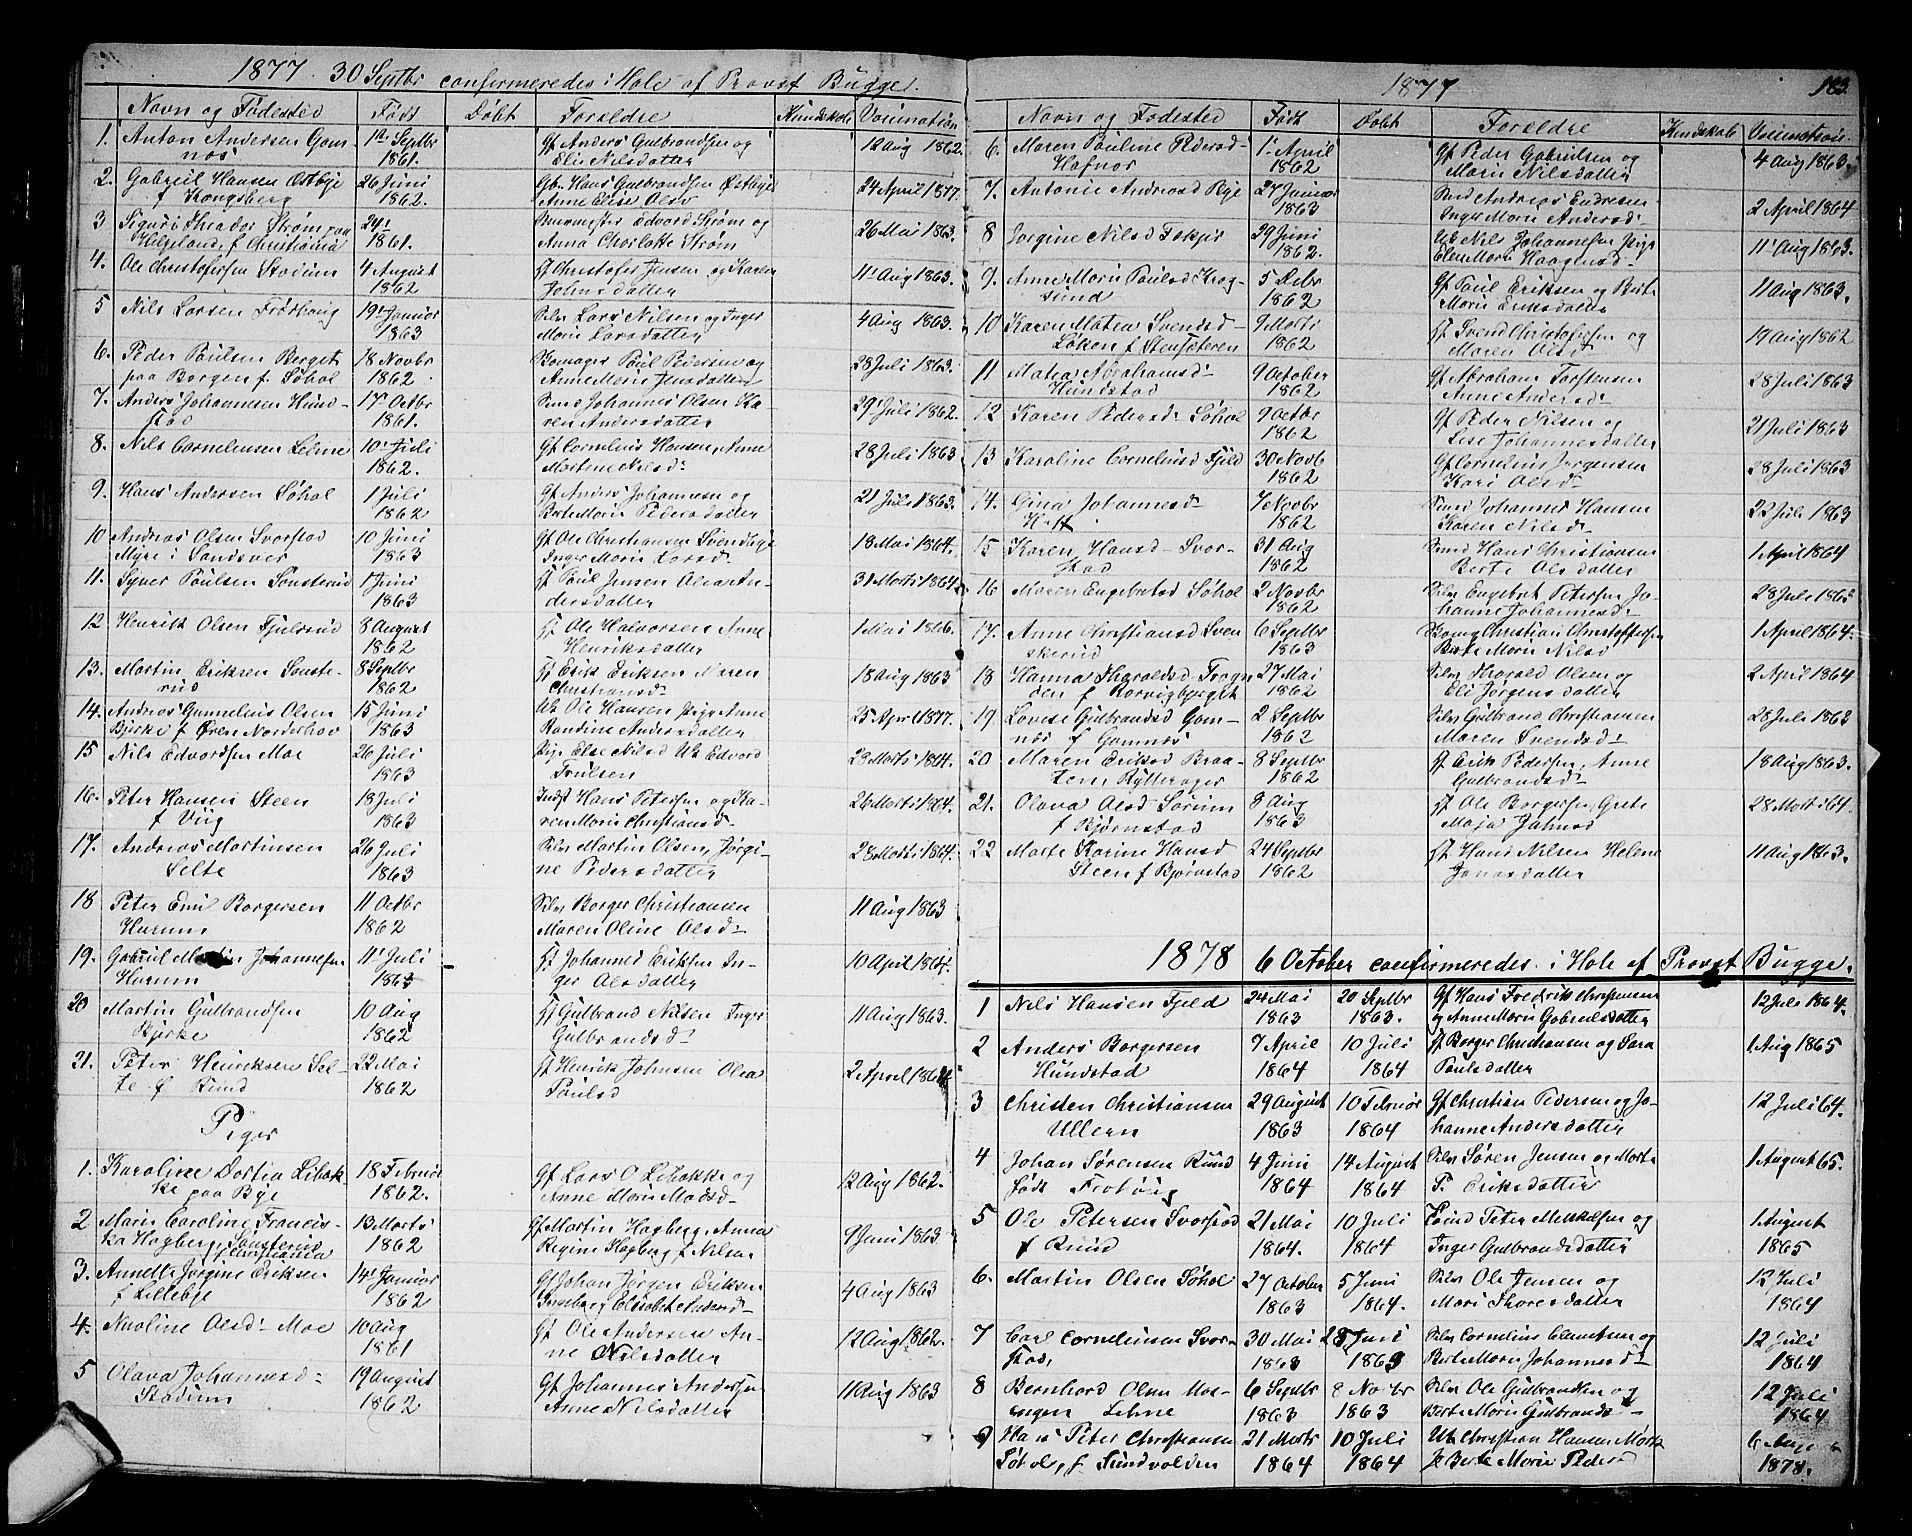 1877. 30 Septbr confirmeredes i Hole af Provst Bugge.
Navn og Fødested Født Døbt Forældre Kundskab Vaccination
1. Anton Andersen Gom- 1st Septbr Gf Anders Gulbrandsen og 12 Aug 1862.
næs 1861. Elie Nilsdatter
2. Gabriel Hansen Østbye 26 Juni Gbr Hans Gulbrandsen Østbye 24 April 1877.
f Kongsberg 1862. Anne Elise Olsv
3 Sigurd Theodor Strøm paa 24 Edvard Strøm og 26 Mai 1863.
Helgeland, f Christiania 1861. Anna Charlotte Strøm
4. Ole Christofersen Stadum 4 August Christofer Jensen og Karen 11 Aug 1863.
1862 Johnsdatter
5 Nils Larsen Frøshoug 19 Januar Selv Lars Nilsen og Inger 4 Aug 1863.
1863 Marie Larsdatter
6. Peder Paulsen Berget 18 Novbr Bomager Paul Pedersen og 28 Juli 1863.
paa Borgen f. Søhol 1862. Anne Marie Jensdatter
7. Anders Johannesen Hund- 17 Octbr Johannes Olsen Ka- 29 Juli 1862.
stad 1861. ren Andersdatter
8. Nils Corneliusen Lehne 10 Juli Gf Cornelius Hansen, Anne 28 Juli 1863
1862. Martine Nilsd:
9. Hans Andersen Søhol 1 Juli Gf Anders Johannesen og 21 Juli 1863.
1862 Berte Marie Pedersdatter
10 Andreas Olsen Svarstad 10 Juni Gf Ole Christiansen Svendsrud 18 Mai 1864.
Myre i Sandsver 1863 Inger Marie Larsd:
11. Syver Paulsen Sønsterud 1 Juni Paul Jensen Olea An- 31 Marts 1864
1863 dersdatter
12 Henrik Olsen Fjulsrud 8 August Ole Halvorsen Anne 1 Mai 1866.
1862 Henriksdatter
13. Martin Eriksen Sønste- 8 Septbr Erik Eriksen Maren 18 Aug 1863
rud 1862 Christiansd:
14. Andreas Gunnelius Olsen 15 Juni Uk Ole Hansen Pige Anne 25 April 1877.
Bjerke f Øren Norderhov 1863 Randine Andersdatter
15 Nils Edvardsen Moe 26 Juli Pige Else Nilsd Uk Edvard 28 Marts 1864.
1863 Truelsen
16. Peter Hansen Steen 18 Juli Indst Hans Petersen og Ka- 26 Marts 1864.
f Viig 1863 ren Marie Christiansd:
17. Andreas Martinsen 26 Juli Selv Martin Olsen, Jørgi- 28 Marts 1864.
Selte 1863 ne Pedersdatter
18 Peter Emil Borgersen 11 Octbr Selv Borger Christiansen 11 Aug 1863
Hurum 1862 Maren Oline Olsd:
19. Gabriel Martin Johannesen 11 Juli Johannes Eriksen In- 10 April 1864.
Hurum 1863 ger Olsdatter
20 Martin Gulbrandsen 10 Aug Gulbrand Nilsen Inger 11 Aug 1863.
Bjerke 1862 Gulbrandsd:
21. Peter Henriksen Sel- 22 Mai Henrik Johnsen Olea 2 April 1864
te f Ruud 1862 Paulsd
Piger
1. Karoline Dortea Libak- 18 Februar Gf Lars O Libakke og 12 Aug 1862.
ke paa Bye 1862. Anne Marie Madsd-
2 Marie Caroline Francis- 13 Marts Gf Martin Hagberg, Anna 9 Juni 1863
ka Hagberg, Sønsterud 1862 Regine Hagberg f Nilsen
f Christiania
3. Annette Jørgine Eriksen 14 Januar Gf Johan Jørgen Eriksen 4 Aug 1863
f Lillebye 1862 Ingeborg Elisabet Andersd-
4. Nicoline Olsd: Moe 10 Aug Gf Ole Andersen An- 12 Aug 1862.
1861 ne Nilsdatter
5 Olava Johannesd: 19 August Gf Johannes Andersen 11 Aug 1863
Stadum 1862 Anne Nilsdatter
1877 183
Navn og Fødested Født Døbt Forældre Kundskab Vaccination.
6. Maren Pauline Pedersd- 1. April Gf Peder Gabrielsen og 4 Aug 1863.
Hafnor 1862 Marie Nilsdatter
7. Antonie Andreasd Bye 27 Januar Andreas Endresen 2 April 1864
1863 Inger Marie Andersd:
8 Jørgine Nilsd Fekjær 29 Juni Uk Nils Johannesen Pige 11 Aug 1863.
1862. Elen Marie Haagensd-
9. Anne Marie Paulsd Krog- 5 Debr Gf Paul Eriksen og Berte 11 Aug 1863.
sund 1862 Marie Eriksdatter
10 Karen Matea Svendsd- 9 Marts Svend Christofersen og 19 Aug 1862
Løken f Stensæteren 1862 Maren Olsd
11 Matea Abrahamsd: 9 October Gf Abraham Torstensen 28 Juli 1863
Hundstad 1862 Anne Andersd:
12 Karen Pedersd: Søhol 9 Octbr Gf Peder Nilsen og 21 Juli 1863
1862 Lise Johannesdatter
13 Karoline Corneliusd Fjeld 30 Novb Gf Cornelius Jørgensen 28 Juli 1863
1862 Kari Olsd
14. Gina Johannesd 7 Novbr Johannes Hansen 22 Juli 1863
1862 Karen Nilsd:
15 Karen Hansd- Svar- 31 Aug Hans Christiansen 1 April 1864
stad 1862 Berte Olsdatter
16 Maren Engebretsd Søhol 2 Novbr Selv Engebret Petersen Jo- 28 Juli 1863
1862 hanne Johannesd:
17. Anne Christiansd Sven 6 Septbr Christian Christoffersen 1 April 1864.
skerud 1863 Berte Marie Nilsd
18 Hanna Thoraldsd Trogn 27 Mai Selv Thorald Olsen og 2 April 1864
den f Korvigbyget 1862 Eli Jørgensdatter
19 Lovise Gulbrandsd Gom- 2 Septbr Selv Gulbrand Christiansen 28 Juli 1863
næs f Gomnæs 1862 Maren Svendsd:
20 Maren Eriksd Braa- 8 Septbr Erik Pedersen, Anne 18 Aug 1863.
ten, Rytterager 1862 Gulbrandsd:
21. Olava Olsd Sørum 3 Aug Ole Borgersen, Grete 28 Marts 64.
f Bjørnstad 1863 Maja Jahnsd
22 Marte Karine Hansd 24 Septbr Hans Nilsen Helene 11 Aug 1863.
Steen f Bjørnstad 1862 Jonasdatter
1878 6 October confirmeredes i Hole af Provst Bugge.
1 Nils Hansen Fjeld 24 Mai 20 Septbr Gf Hans Fredrik Christiansen 12 Juli 1864.
1863 1863. og Anne Marie Gabrielsdatter
2 Anders Borgersen 7 April 10 Juli Borger Christiansen og Sara 1 Aug 1865
Hundstad 1864 1864 Paulsdatter
3 Christen Christiansen 29 August 10 Februar Gf Christian Pedersen og Jo- 12 Juli 64.
Ullern 1863 1864 hanne Andersdatter
4 Johan Sørensen Ruud 4 Juni 14 August Selv Søren Jensen og Marte 1 August 65.
født Frøhoug 1864 1864 P. Eriksdatter
5 Ole Petersen Svarstad 21 Mai 10 Juli Peter Mikkelsen og 1 August
f Ruud 1864. 1864 Inger Gulbrandsdatter 1865
6. Martin Olsen Søhol 27 October 5 Juni Selv Ole Jensen og 12 Juli
1863 1864. Mari Thoresdatter 1864
7 Carl Corneliusen Svar- 30 Mai 28 Juni Selv Cornelius Clemetsen og 12 Juli
stad, 1863 1863 Berte Marie Johannesd: 1864
8 Bernhard Olsen Mos- 6 Septbr 8 Novbr Selv Ole Gulbrandsen og 12 Juli
engen Lehne 1863 1863 Berte Marie Gulbrandsd- 1864
9 Hans Peter Christiansen 21 Marts 10 Juli Uk Christian Hansen Mork 6 Aug
Søhol, f Sundvolden 1864 1864 Berte Marie Pedersd 1878.